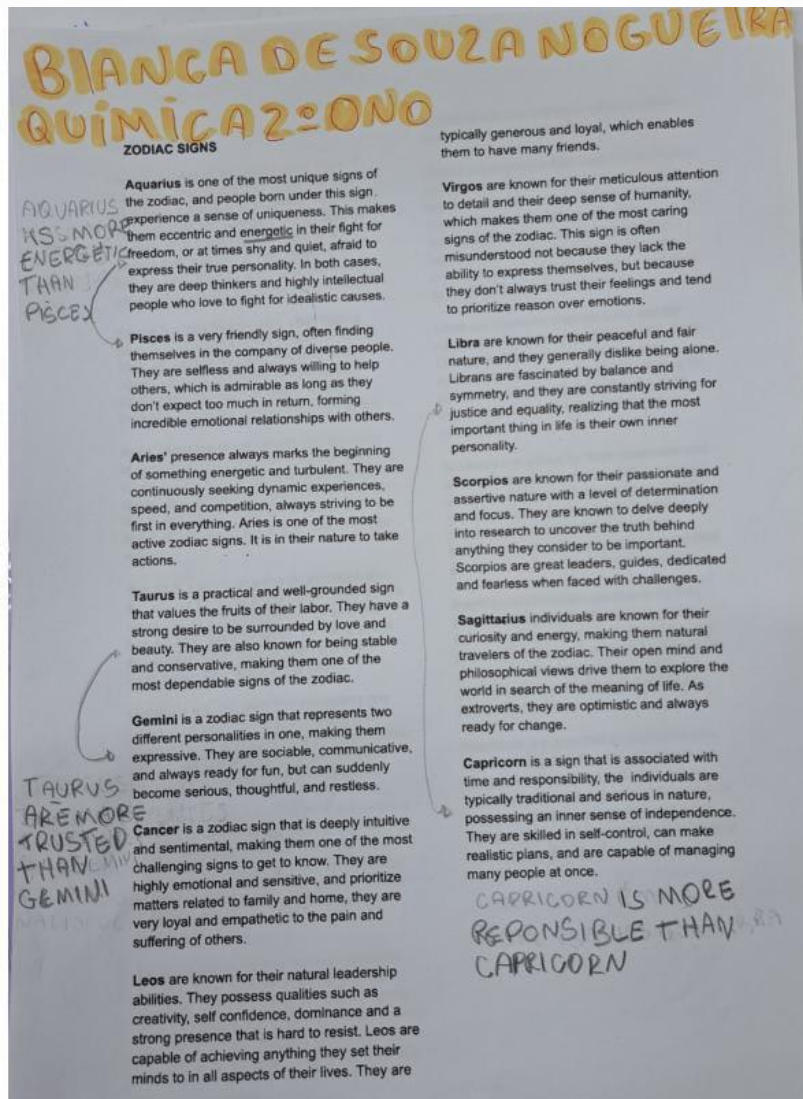 BIANCA DE SOUZA NOGUEIRA
QUÍMICA 2º ONO
ZODIAC SIGNS
Aquarius is one of the most unique signs of
the zodiac, and people born under this sign
experience a sense of uniqueness. This makes
them eccentric and energetic in their fight for
freedom, or at times shy and quiet, afraid to
express their true personality. In both cases,
they are deep thinkers and highly intellectual
people who love to fight for idealistic causes.
AQUARIUS
IS MORE
ENERGETIC
THAN
PISCEX
Pisces is a very friendly sign, often finding
themselves in the company of diverse people.
They are selfless and always willing to help
others, which is admirable as long as they
don't expect too much in return, forming
incredible emotional relationships with others.
Aries' presence always marks the beginning
of something energetic and turbulent. They are
continuously seeking dynamic experiences,
speed, and competition, always striving to be
first in everything. Aries is one of the most
active zodiac signs. It is in their nature to take
actions.
Taurus is a practical and well-grounded sign
that values the fruits of their labor. They have a
strong desire to be surrounded by love and
beauty. They are also known for being stable
and conservative, making them one of the
most dependable signs of the zodiac.
Gemini is a zodiac sign that represents two
different personalities in one, making them
expressive. They are sociable, communicative,
and always ready for fun, but can suddenly
become serious, thoughtful, and restless.
TAURUS
ARE MORE
TRUSTED
THAN
GEMINI
Cancer is a zodiac sign that is deeply intuitive
and sentimental, making them one of the most
challenging signs to get to know. They are
highly emotional and sensitive, and prioritize
matters related to family and home, they are
very loyal and empathetic to the pain and
suffering of others.
Leos are known for their natural leadership
abilities. They possess qualities such as
creativity, self confidence, dominance and a
strong presence that is hard to resist. Leos are
capable of achieving anything they set their
minds to in all aspects of their lives. They are
typically generous and loyal, which enables
them to have many friends.
Virgos are known for their meticulous attention
to detail and their deep sense of humanity,
which makes them one of the most caring
signs of the zodiac. This sign is often
misunderstood not because they lack the
ability to express themselves, but because
they don't always trust their feelings and tend
to prioritize reason over emotions.
Libra are known for their peaceful and fair
nature, and they generally dislike being alone.
Librans are fascinated by balance and
symmetry, and they are constantly striving for
justice and equality, realizing that the most
important thing in life is their own inner
personality.
Scorpios are known for their passionate and
assertive nature with a level of determination
and focus. They are known to delve deeply
into research to uncover the truth behind
anything they consider to be important.
Scorpios are great leaders, guides, dedicated
and fearless when faced with challenges.
Sagittarius individuals are known for their
curiosity and energy, making them natural
travelers of the zodiac. Their open mind and
philosophical views drive them to explore the
world in search of the meaning of life. As
extroverts, they are optimistic and always
ready for change.
Capricorn is a sign that is associated with
time and responsibility, the individuals are
typically traditional and serious in nature,
possessing an inner sense of independence.
They are skilled in self-control, can make
realistic plans, and are capable of managing
many people at once.
CAPRICORN IS MORE
REPONSIBLE THAN
CAPRICORN